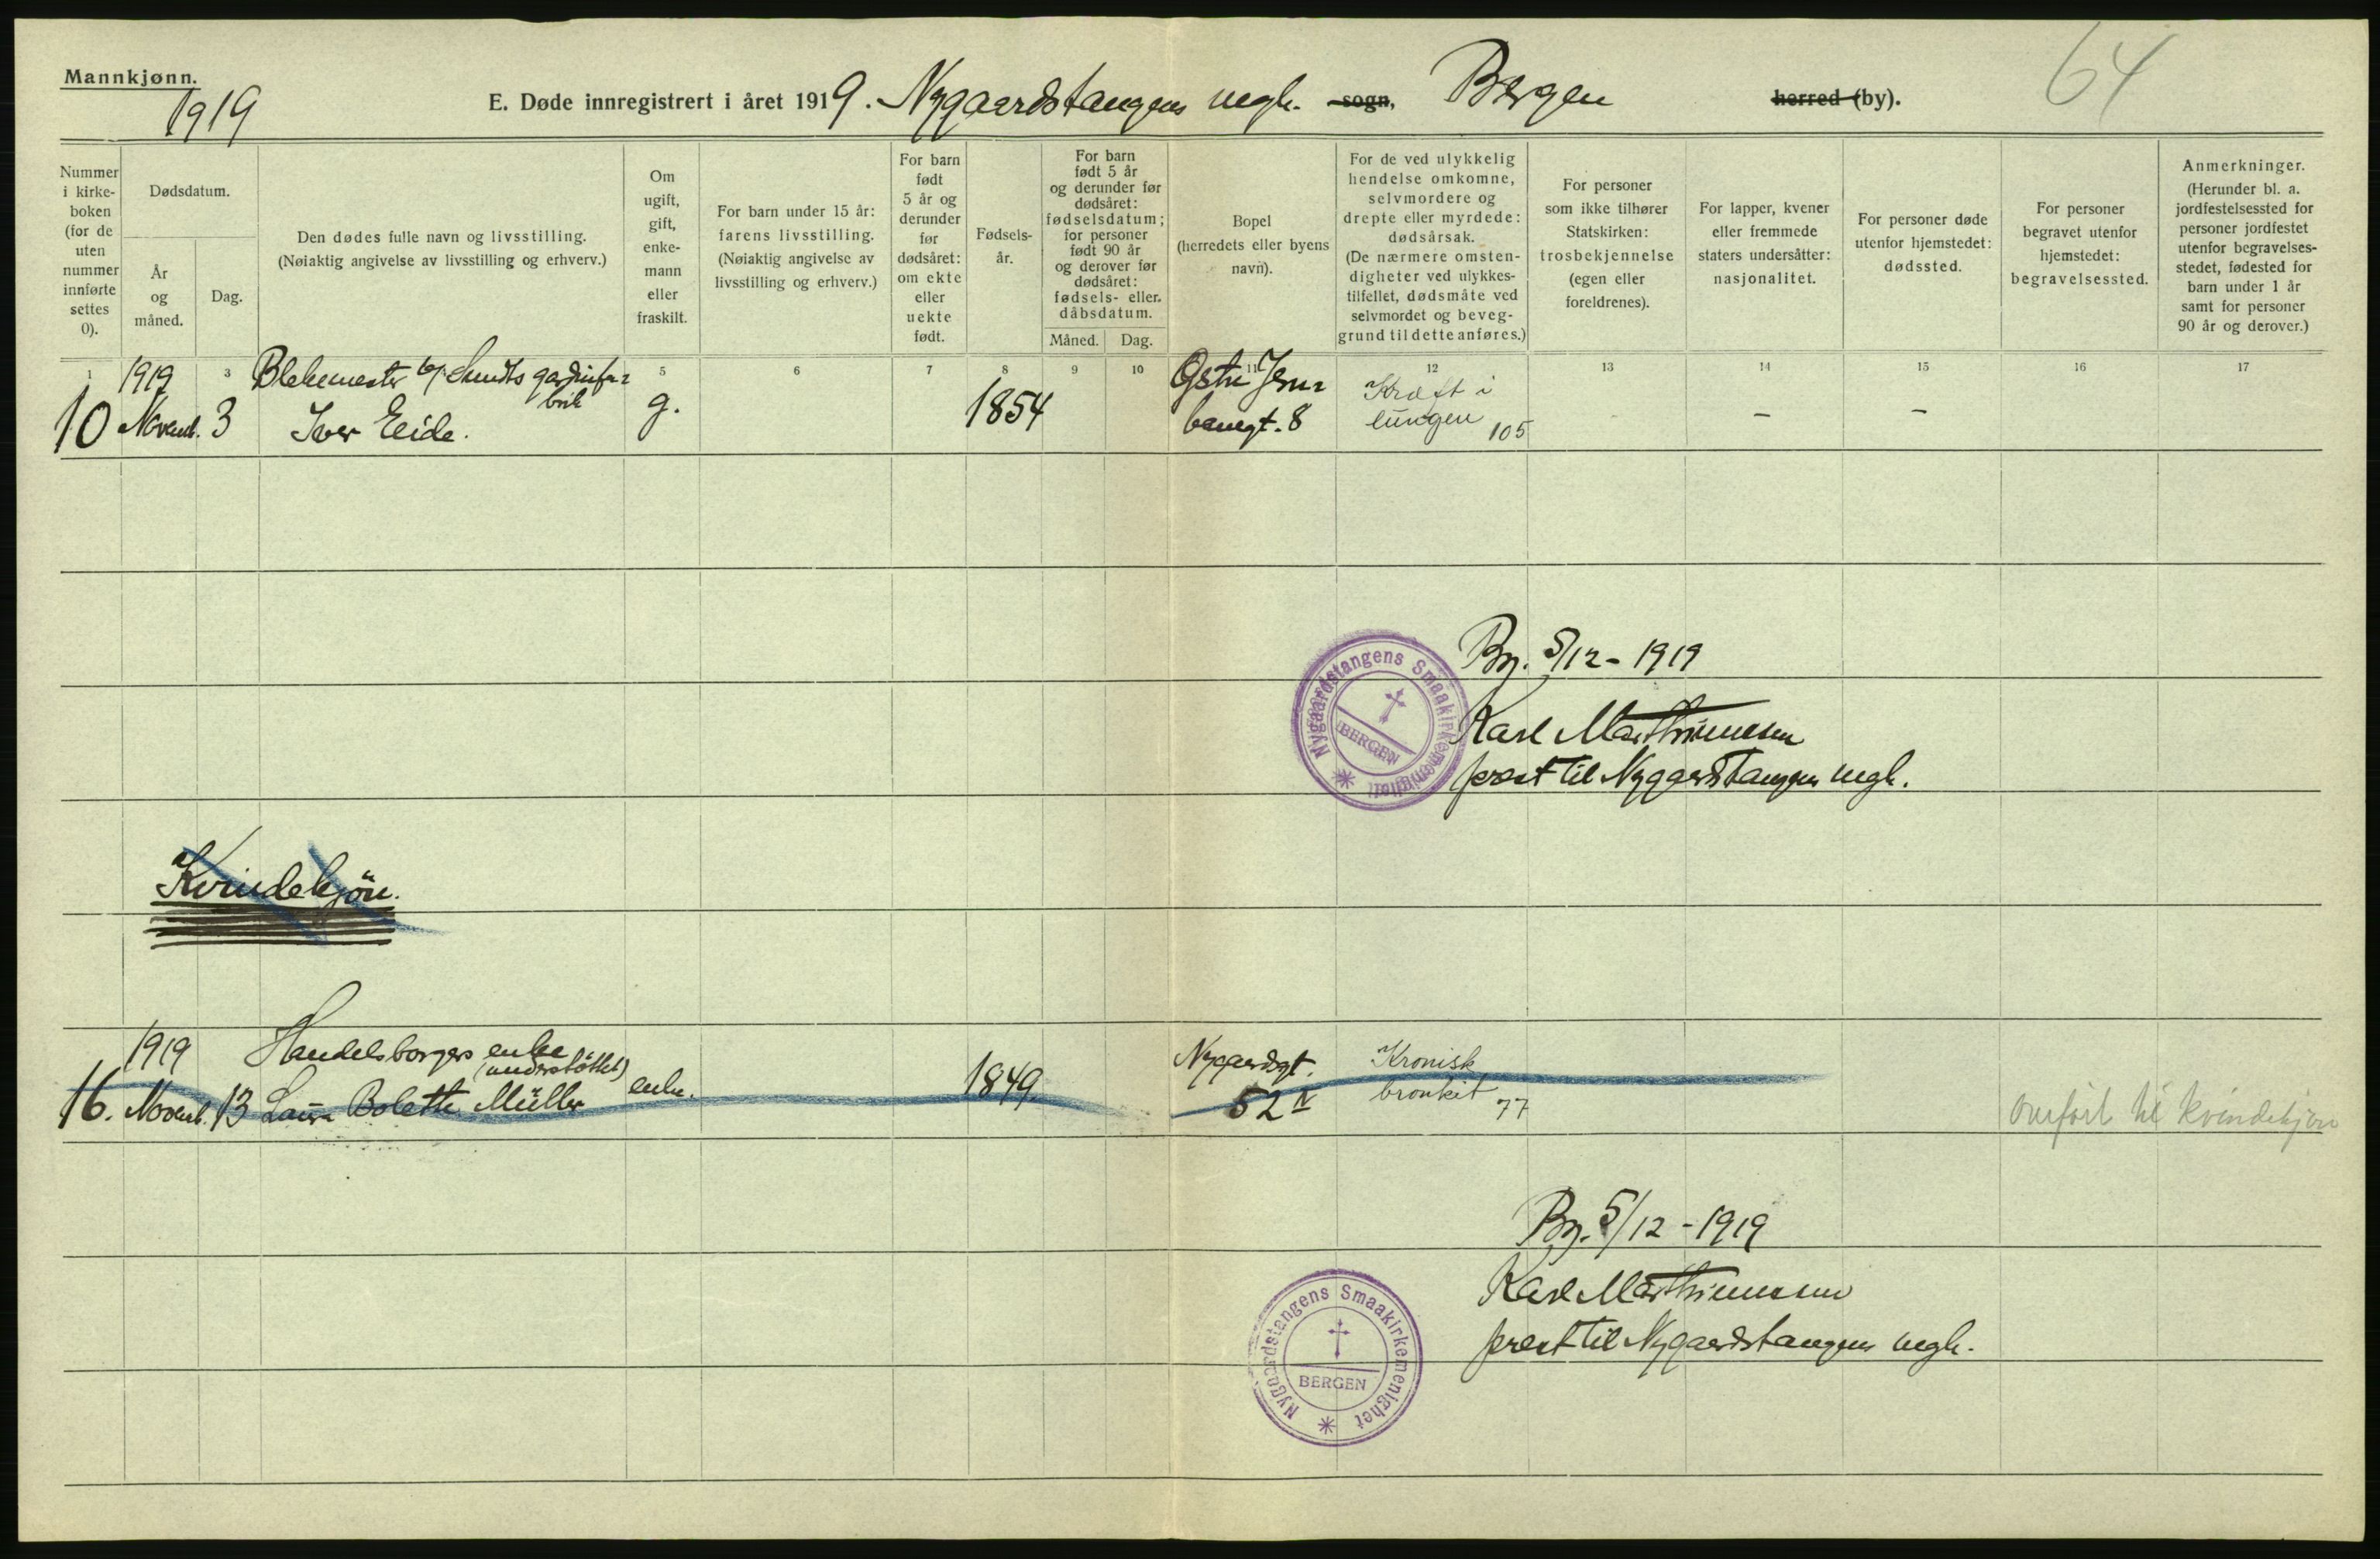 Mannkjønn.
1919
E. Døde innregistrert i året 1919. Nygaardstangens megh. sogn, Bergen herred (by).
64
Nummer i kirke-boken (for de uten nummer innførte settes 0).
Dødsdatum.
År og måned.
Dag.
Den dødes fulle navn og livsstilling.
(Nøiaktig angivelse av livsstilling og erhverv.)
Om ugift, gift, enke-mann eller fraskilt.
For barn under 15 år: farens livsstilling. (Nøiaktig angivelse av livsstilling og erhverv.)
For barn født 5 år og derunder før dødsåret: om ekte eller uekte født.
Fødsels-år.
For barn født 5 år og derunder før dødsåret: fødselsdatum; for personer født 90 år og derover før dødsåret: fødsels- eller dåbsdatum.
Måned.
Dag.
Bopel (herredets eller byens navn).
For de ved ulykkelig hendelse omkomne, selvmordere og drepte eller myrdede: dødsårsak. (De nærmere omsten-digheter ved ulykkes-tilfellet, dødsmåte ved selvmordet og beveg-grund til dette anføres.)
For personer som ikke tilhører Statskirken: trosbekjennelse (egen eller foreldrenes).
For lapper, kvener eller fremmede staters undersåtter: nasjonalitet.
For personer døde utenfor hjemstedet: dødssted.
For personer begravet utenfor hjemstedet: begravelsessted.
Anmerkninger. (Herunder bl. a. jordfestelsessted for personer jordfestet utenfor begravelses-stedet, fødested for barn under 1 år samt for personer 90 år og derover.)
1 3 5 6 7 8 9 10 11 12 13 14 15 16 17
1919 Blekemester Sundts gardinfa=
brik
10 Novemb. 3 Iver Eeide. g. 1854
Kræft i
lungen 105
banegt. 8 — —
Nygaardstangens Smaakirkemenighet
BERGEN
Bg. 5/12 - 1919
Karl Marthinussen
prest til Nygaardstangens megh.
Kvindekjön.
1919 Handelsborgers enke
(understöttet)
16. Novemb. 13 Laura Bolette Müller enke. 1849.
Nygaardsgt.
52 IV
Kronisk
bronkit 77
Overført til kvindekjøn
Bg. 5/12 - 1919
Karl Marthinussen
prest til Nygaardstangens megh.
Nygaardstangens Smaakirkemenighet
BERGEN